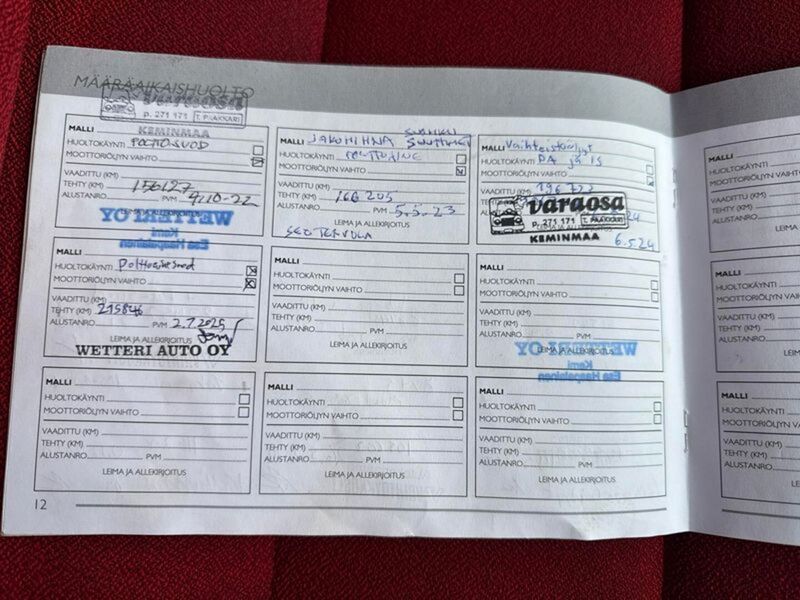 MÄÄRÄAIKAISHUOLTO
varaosa
P. 271 171 T. PAAKKARI
KEMINMAA
MALLI
HUOLTOKÄYNTI
MOOTTORIÖLJYN VAIHTO
VAADITTU (KM)
TEHTY (KM) 156127
ALUSTANRO. PVM 4.10-22
LEIMA JA ALLEKIRJOITUS
WETTERI OY
Kemi
Esa Haapalainen
MALLI JAKOHIHNA
HUOLTOKÄYNTI
MOOTTORIÖLJYN VAIHTO
VAADITTU (KM)
TEHTY (KM) 166 205
ALUSTANRO. PVM 5.5.23
LEIMA JA ALLEKIRJOITUS
SEO TERVOLA
MALLI Vaihteistoöljyt
HUOLTOKÄYNTI PA ja IS
MOOTTORIÖLJYN VAIHTO
VAADITTU (KM)
varaosa
P. 271 171 T. PAAKKARI
KEMINMAA
6.5.24
MALLI
HUOLTOKÄYNTI
MOOTTORIÖLJYN VAIHTO
VAADITTU (KM)
TEHTY (KM) 215846
ALUSTANRO. PVM 2.7.2025
LEIMA JA ALLEKIRJOITUS
WETTERI AUTO OY
MALLI
HUOLTOKÄYNTI
MOOTTORIÖLJYN VAIHTO
VAADITTU (KM)
TEHTY (KM)
ALUSTANRO. PVM
LEIMA JA ALLEKIRJOITUS
MALLI
HUOLTOKÄYNTI
MOOTTORIÖLJYN VAIHTO
VAADITTU (KM)
TEHTY (KM)
ALUSTANRO. PVM
LEIMA JA ALLEKIRJOITUS
WETTERI OY
Kemi
Esa Haapalainen
MALLI
HUOLTOKÄYNTI
MOOTTORIÖLJYN VAIHTO
VAADITTU (KM)
TEHTY (KM)
ALUSTANRO. PVM
LEIMA JA ALLEKIRJOITUS
MALLI
HUOLTOKÄYNTI
MOOTTORIÖLJYN VAIHTO
VAADITTU (KM)
TEHTY (KM)
ALUSTANRO. PVM
LEIMA JA ALLEKIRJOITUS
MALLI
HUOLTOKÄYNTI
MOOTTORIÖLJYN VAIHTO
VAADITTU (KM)
TEHTY (KM)
ALUSTANRO. PVM
LEIMA JA ALLEKIRJOITUS
12
MALLI
HUOLTOKÄYNTI
MOOTTORIÖLJYN
VAADITTU (KM)
TEHTY (KM)
ALUSTANRO.
MALLI
HUOLTOKÄYNTI
MOOTTORIÖLJYN
VAADITTU (KM)
TEHTY (KM)
ALUSTANRO.
MALLI
HUOLTOKÄYNTI
MOOTTORIÖLJYN
VAADITTU (KM)
TEHTY (KM)
ALUSTANRO.